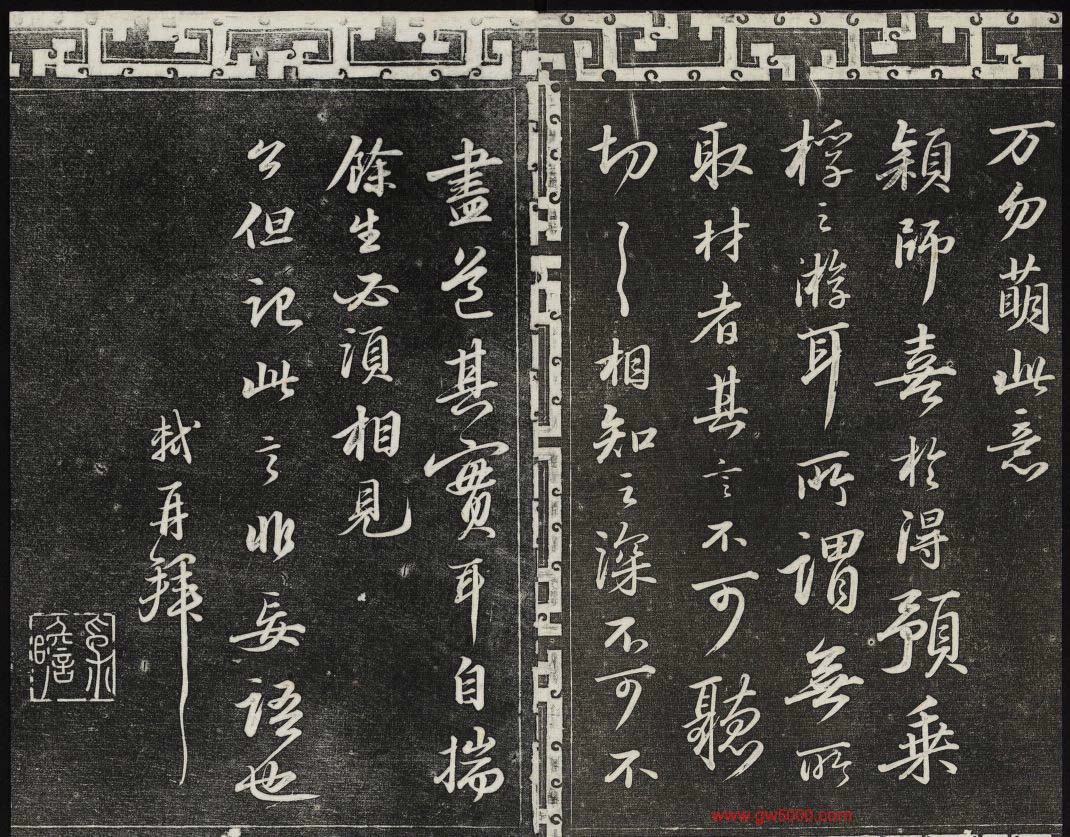 万勿萌此意
颖師喜於得預乗
桴之游耳所謂無所
取材者其言不可聽
切切相知之深不可不
盡道其實耳自揣
餘生必須相見
公但記此言非妄語也
軾再拜
www.gw5000.com